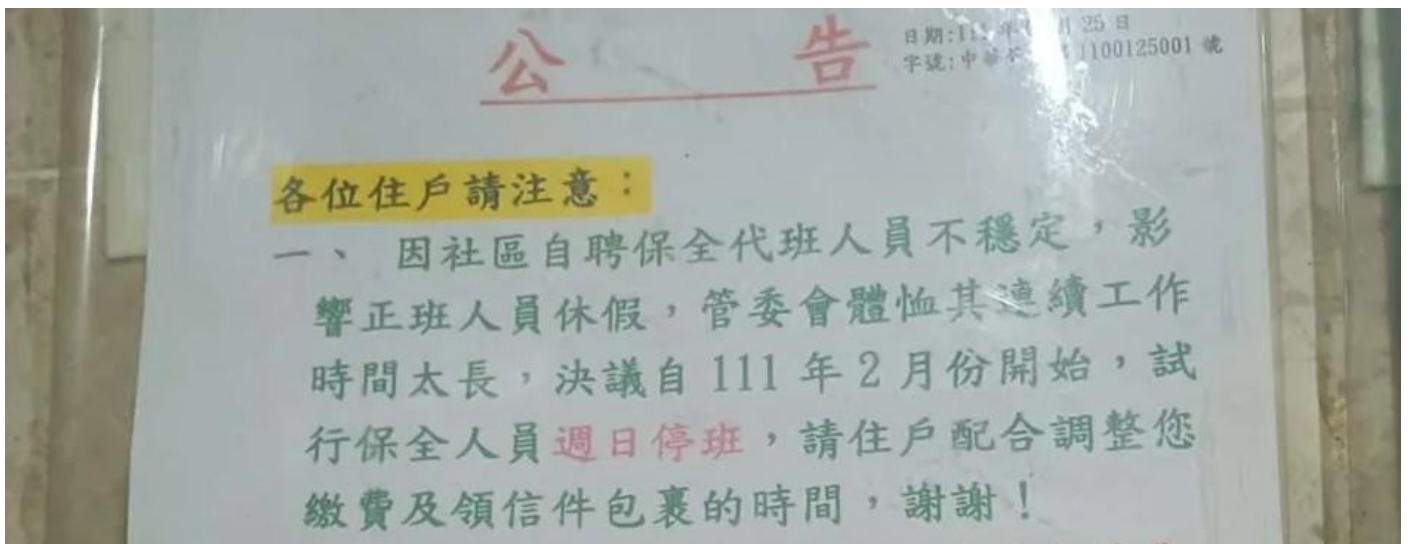 公告
日期:111年 月25日
字號:中華 1100125001 號
各位住戶請注意：
一、 因社區自聘保全代班人員不穩定，影
響正班人員休假，管委會體恤其連續工作
時間太長，決議自 111 年 2 月份開始，試
行保全人員週日停班，請住戶配合調整您
繳費及領信件包裹的時間，謝謝！